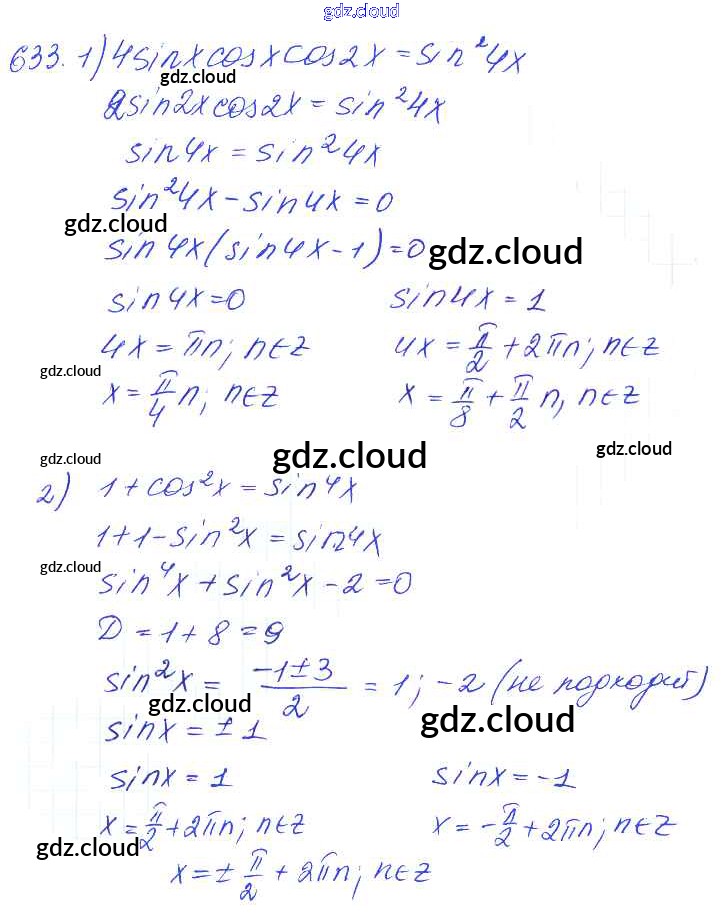 gdz.cloud
633. 1) 4sinxcosxcos2x = sin²4x
gdz.cloud
2sin2xcos2x = sin²4x
sin4x = sin²4x
sin²4x - sin4x = 0
gdz.cloud
sin4x(sin4x - 1) = 0 gdz.cloud
sin4x = 0 sin4x = 1
4x = πn; n∈Z 4x = π/2 + 2πn; n∈Z
gdz.cloud
x = π/4 n; n∈Z x = π/8 + π/2 n, n∈Z
gdz.cloud gdz.cloud gdz.cloud
2) 1 + cos²x = sin⁴x
1+1-sin²x = sin4x
gdz.cloud
sin⁴x + sin²x - 2 = 0
D = 1 + 8 = 9
sin²x = (-1±3)/2 = 1; -2 (не подходит)
gdz.cloud gdz.cloud
sinx = ±1
sinx = 1 sinx = -1
x = π/2 + 2πn; n∈Z x = -π/2 + 2πn; n∈Z
gdz.cloud
x = ± π/2 + 2πn; n∈Z